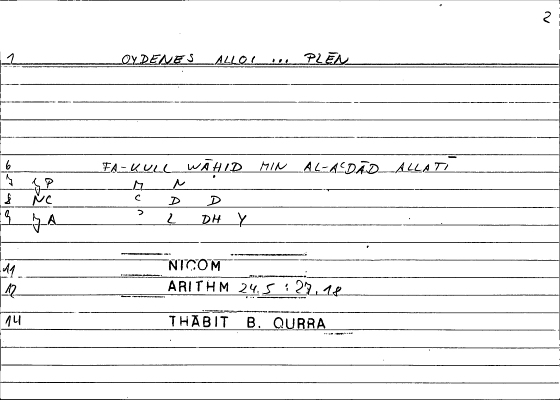 2
1 OYDENES ALLOI ... PLĒN
6 FA-KULL WĀḤID MIN AL-AʿDĀD ALLATĪ
P M N
8 NC ʿ D D
9 A ʾ L DH Y
11 NICOM
12 ARITHM 24.5 : 27.18
14 THĀBIT B. QURRA